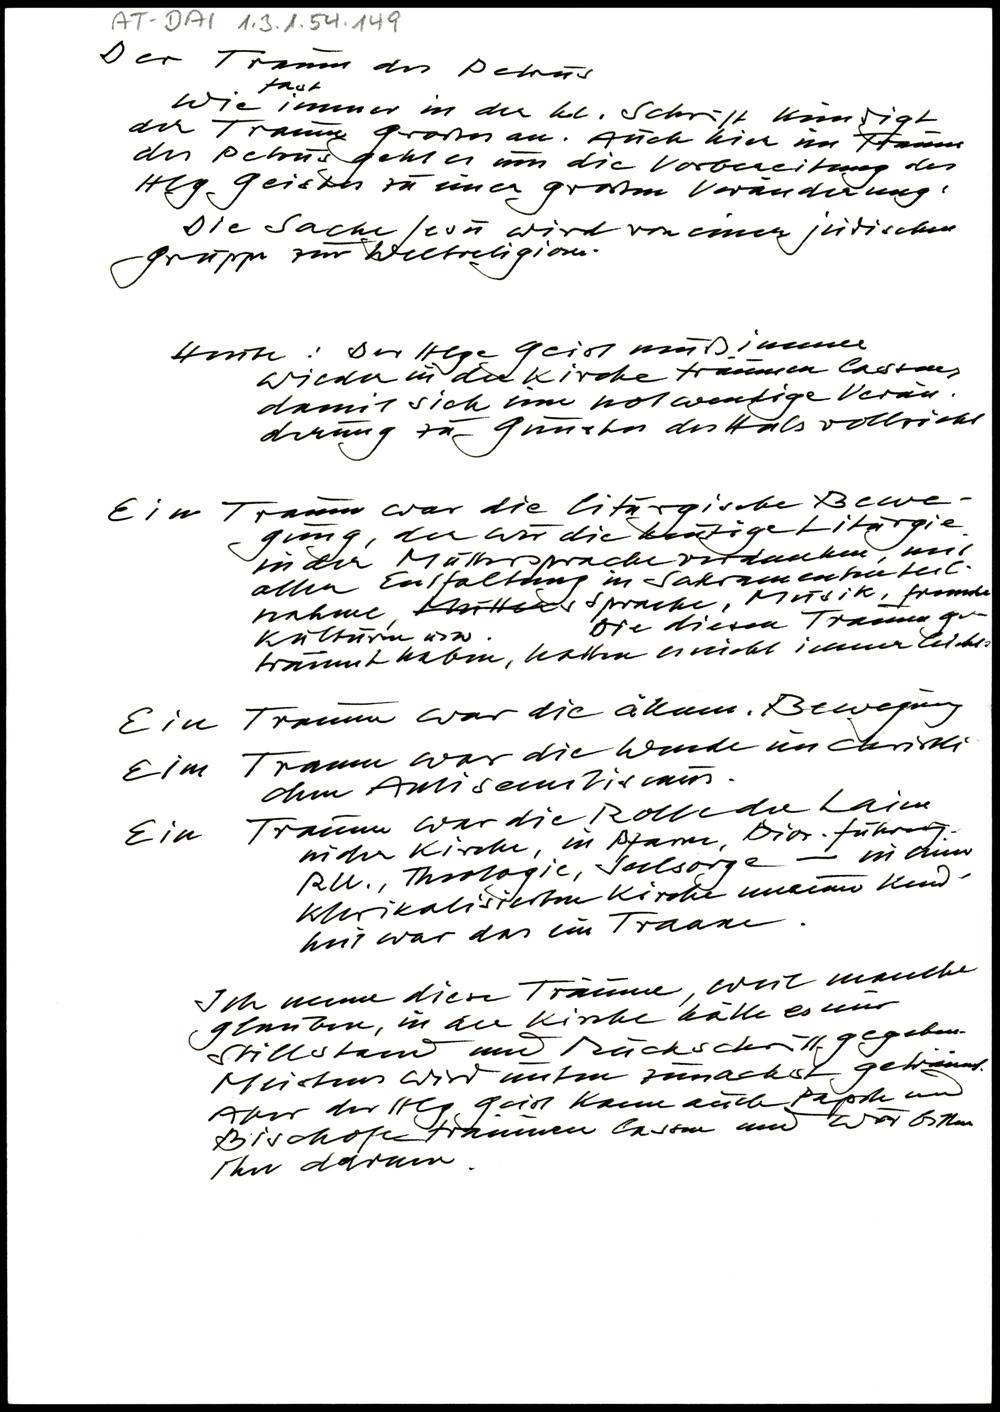 AT-DAI 1.3.1.54.149
Der Traum des Petrus
fast
Wie immer in der hl. Schrift kündigt
der Traum Großes an. Auch hier im Traum
des Petrus geht es um die Vorbereitung des
Hlg. Geistes zu einer großen Veränderung:
Die Sache Jesu wird von einer jüdischen
Gruppe zur Weltreligion.
Heute: Der Hlge Geist muß immer
wieder in der Kirche träumen lassen,
damit sich eine notwendige Verän-
derung zu Gunsten des Heils vollzieht
Ein Traum war die liturgische Bewe-
gung, der wir die heutige Liturgie
in der Muttersprache verdanken, mit
allen Entfaltung in Sakramenten, Teil-
nahme, Sprache, Musik, fremde
Kulturen usw. Die diesen Traum ge-
träumt haben, hatten es nicht immer leicht.
Ein Traum war die ökum. Bewegung
Ein Traum war die Wende im christli
chen Antisemitismus.
Ein Traum war die Rolle der Laien
in der Kirche, in Pfarre, Diöz.führung,
RU., Theologie, Seelsorge — in einer
klerikalisierten Kirche unserer Kind-
heit war das ein Traum.
Ich nenne diese Träume, weil manche
glauben, in der Kirche hätte es nur
Stillstand und Rückschritt gegeben.
Meistens wird unten zunächst geträumt.
Aber der Hlg. Geist kann auch Päpste und
Bischöfe träumen lassen und wir bitten
Ihn darum.